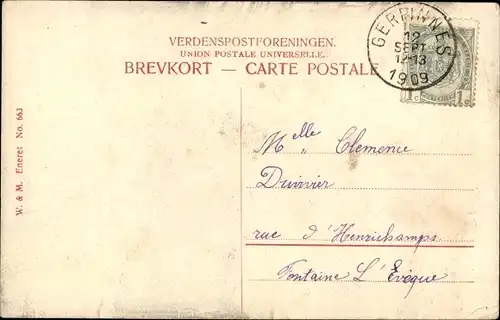 VERDENSPOSTFORENINGEN.
UNION POSTALE UNIVERSELLE.
BREVKORT — CARTE POSTALE
GERPINNES
12
SEPT
12-13
1909
1c 1c
W. & M. Eneret No. 663
Melle „ Clemence
Duvivier
rue d'Henrichamps
Fontaine L'Évêque